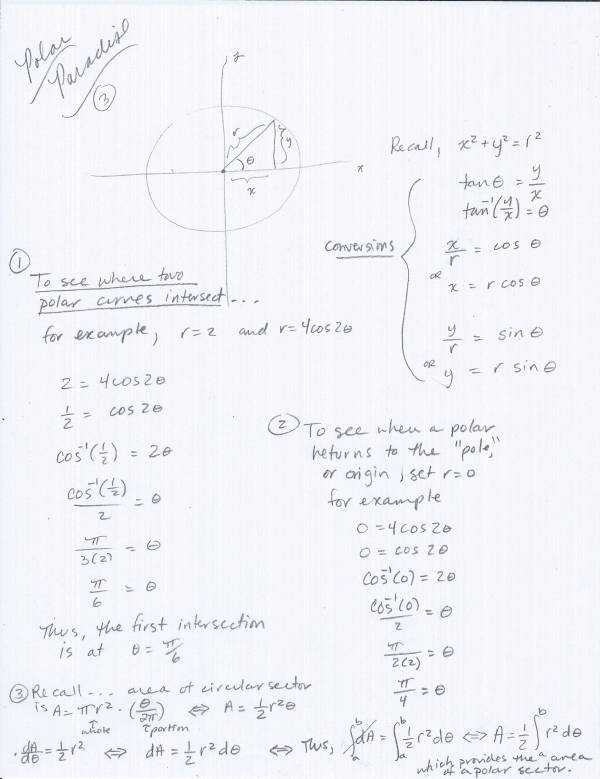 Polar
Paradise
③
y
r
y
θ
x
x
Recall, x² + y² = r²
tanθ = y/x
tan⁻¹(y/x) = θ
conversions
x/r = cos θ
OR
x = r cos θ
y/r = sin θ
OR y = r sin θ
①
To see where two
polar curves intersect...
for example, r = 2 and r = 4cos2θ
2 = 4cos2θ
1/2 = cos2θ
cos⁻¹(1/2) = 2θ
cos⁻¹(1/2)/2 = θ
π/3(2) = θ
π/6 = θ
Thus, the first intersection
is at θ = π/6
② To see when a polar
returns to the "pole,"
or origin, set r=0
for example
0 = 4cos2θ
0 = cos2θ
cos⁻¹(0) = 2θ
cos⁻¹(0)/2 = θ
π/2(2) = θ
π/4 = θ
③ Recall... area of circular sector
is A = πr² · (θ/2π) ⇔ A = 1/2 r²θ
↑ whole ↑ portion
· dA/dθ = 1/2 r² ⇔ dA = 1/2 r² dθ ⇔ Thus, ∫ₐᵇ dA = ∫ₐᵇ 1/2 r² dθ ⇔ A = 1/2 ∫ₐᵇ r² dθ
which provides the area
of a polar sector.